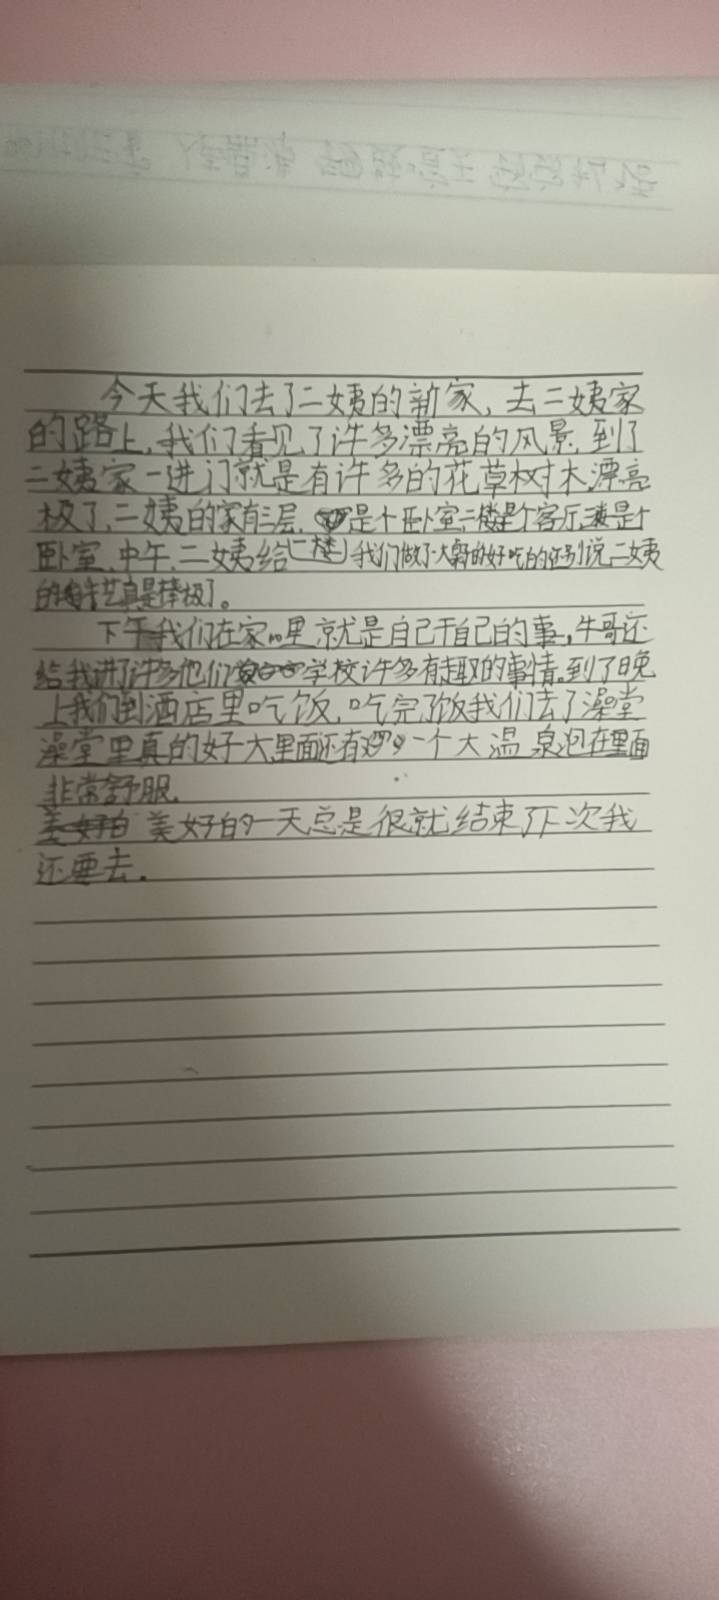 今天我们去了二姨的新家,去二姨家
的路上,我们看见了许多漂亮的风景,到了
二姨家一进门就是有许多的花草树木,漂亮
极了,二姨的家有三层,是个卧室二楼是个客厅,三楼是个
卧室,中午,二姨给(一楼)我们做了大霸的好吃的还别说二姨
的手艺真是棒极了。
下午我们在家里就是自己干自己的事,牛哥还
给我讲了许多他们学校许多有趣的事情,到了晚
上我们到酒店里吃饭,吃完了饭我们去了澡堂
澡堂里真的好大里面还有一个大温泉泡在里面
非常舒服.
美好的一天总是很就结束了下次我
还要去.